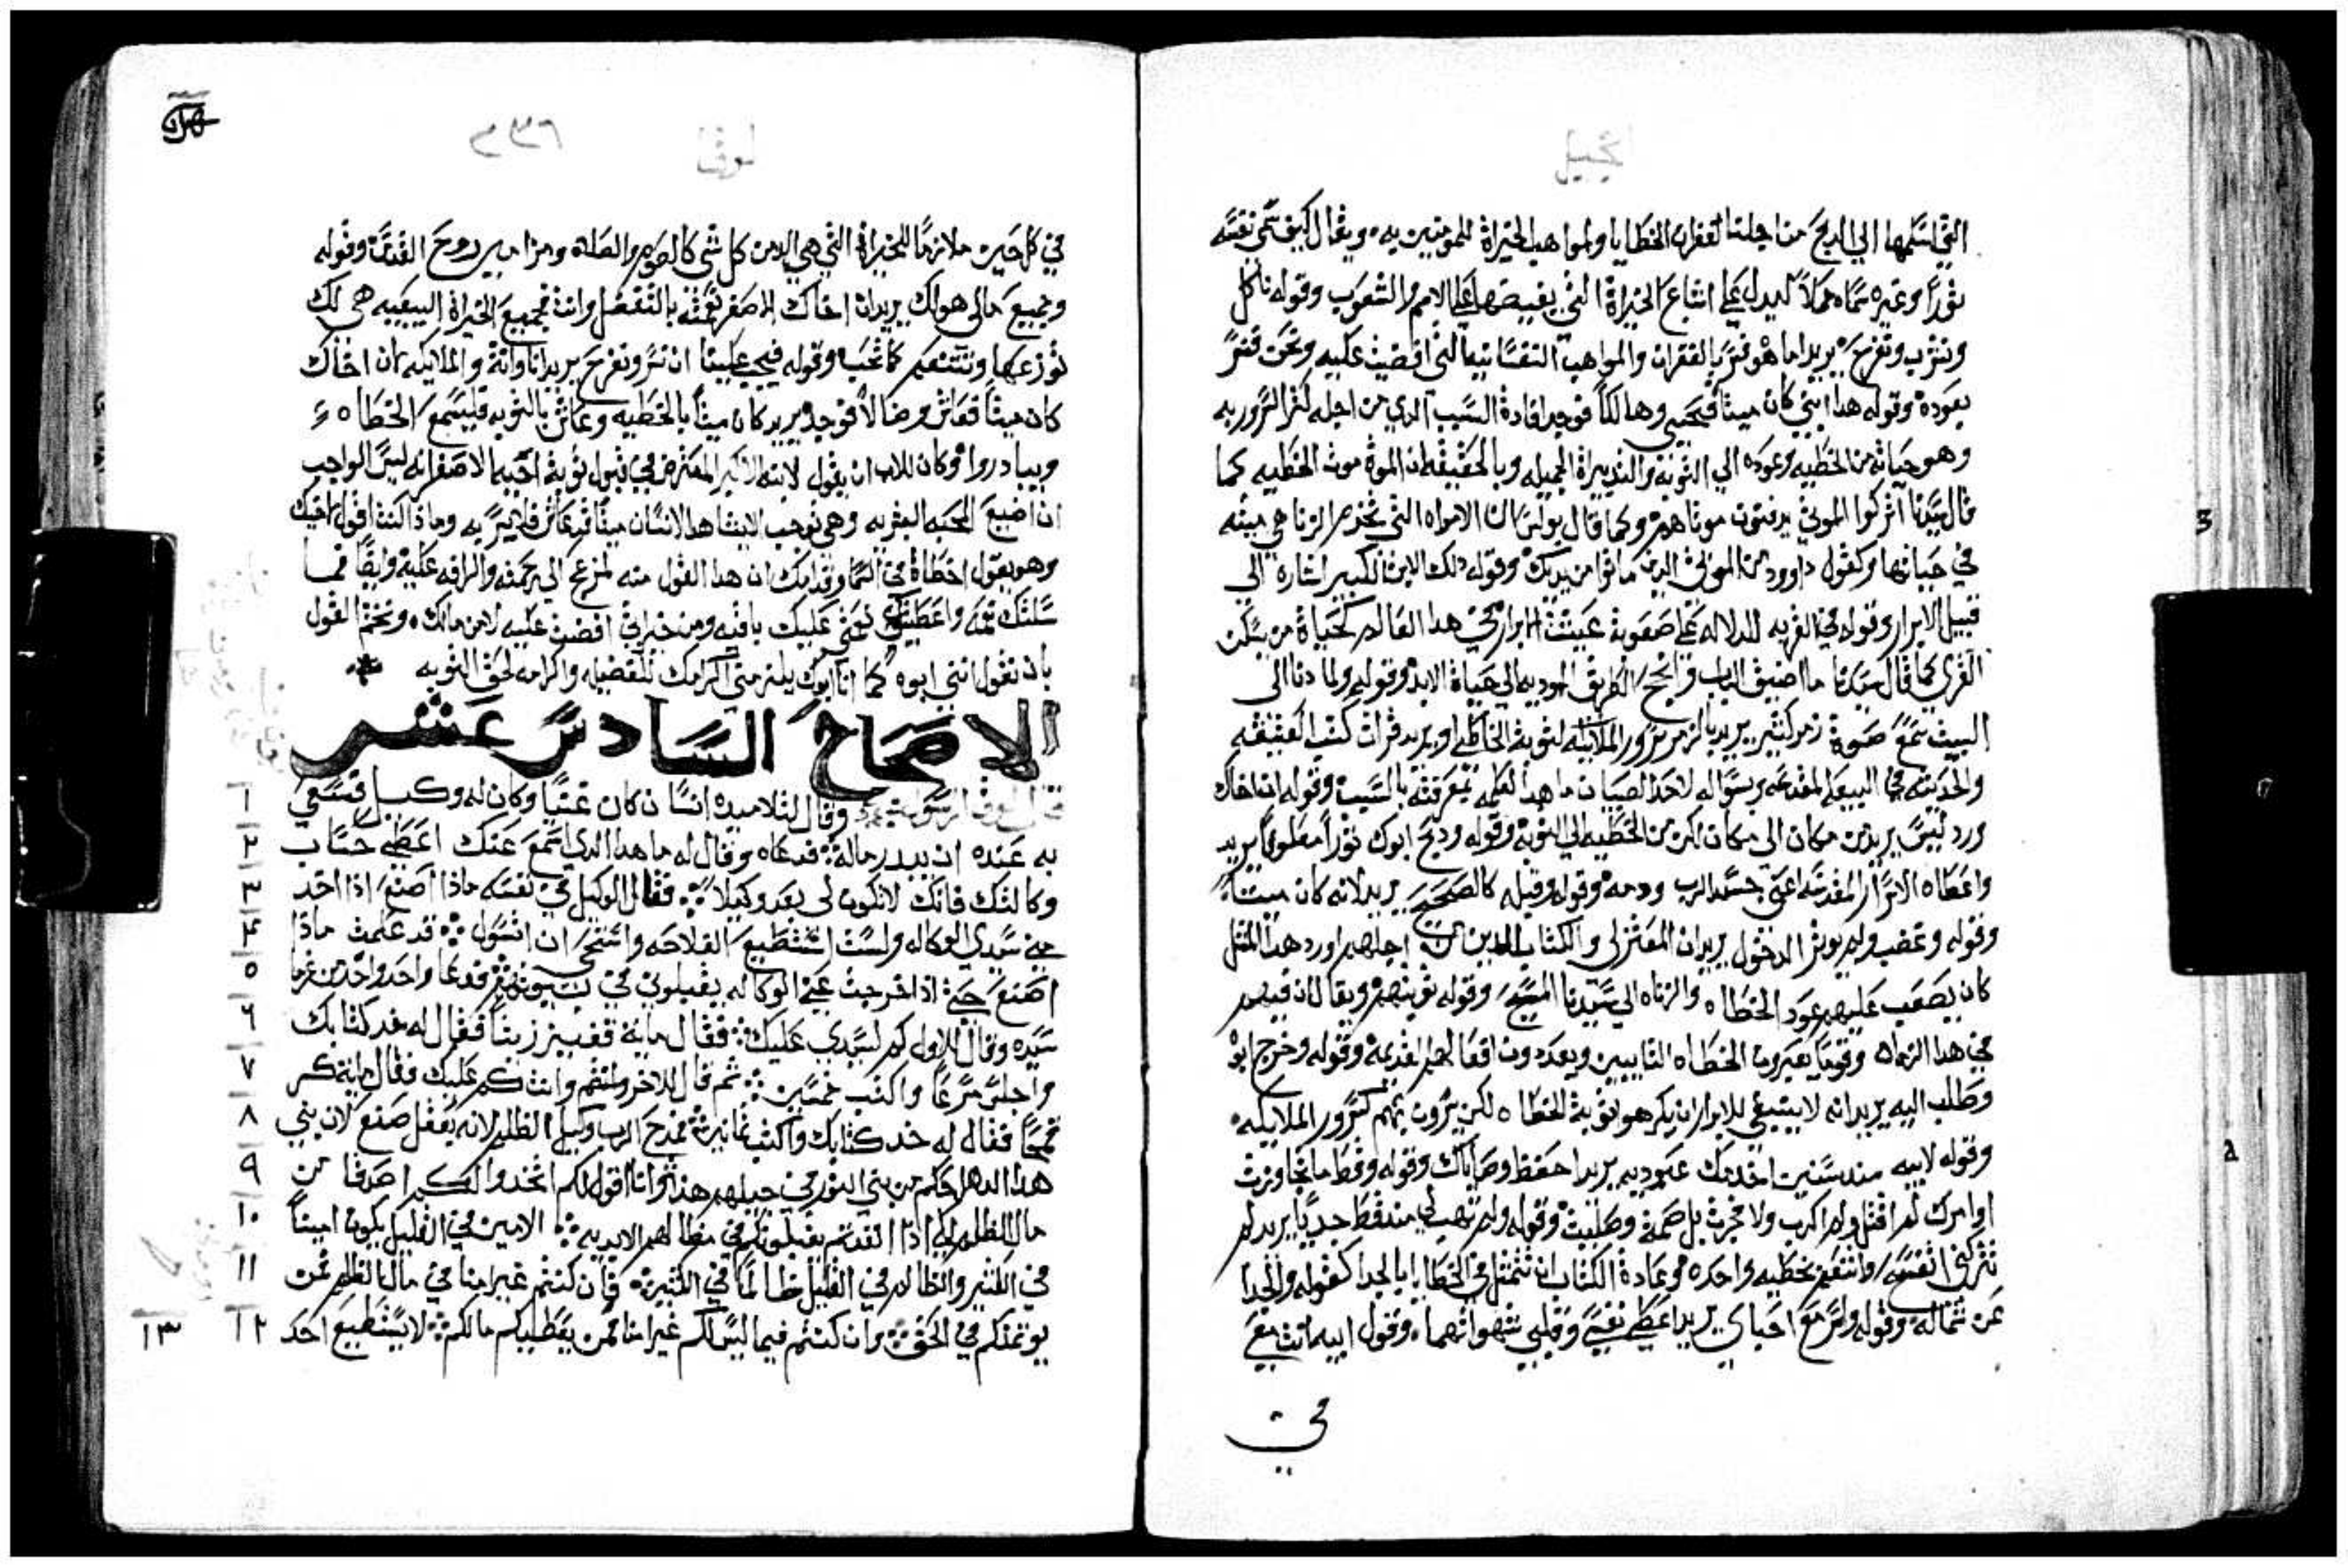 انجيل
التي اسلمها الي الدبح من اجلنا لغفران الخطايا والمواهب الخيراة للمومنين به ويقال كيف سمي نفسه
وغيره سماه حملاً ليدل علي اتساع الخيراة التي يفيضها علي الامم والشعوب وقوله ناكل
ونشرب ونفرح يريد اما هو فسر بالغفران والمواهب النفسانيه التي افضيت عليه ونحن فنسر
بعوده وقوله هدا ابني كان ميتاً فحيي وهالكاً فوجد افادة السبب الدي من اجله كثر السرور به
وهو حياته من الخطيه وعوده الي التوبه والتدبيراة الجميله وبالحقيقه ان الموة موت الخطيه كما
قال سيدنا اتركوا الموتي يدفنون موتاهم وكما قال بولس ان الامراه التي تخدم الزنا هي ميته
في حياتها وكقول داوود من الموتي الدين ماتوا من يديك وقوله دلك الابن الكبير اشارة الي
قبيل الابرار وقوله في القريه للدلاله علي صعوبة عيشة الابرار في هدا العالم كحياة من يسكن
القري كما قال سيدنا ما اضيق الباب واحرج الطريق الموديه الي حياة الابد وقوله ولما دنا الي
البيت سمع صوة زمر كثير يريد بالزمر سرور الملايكه لتوبة الخاطي او يريد قراة كتب العتيقه
والحديثه في البيعه المقدسه وسواله لاحد الصبيان ما هدا لعلمه بمعرفته بالسبب وقوله ان اخاك
ورد ليس يريد من مكان الي مكان لكن من الخطيه الي التوبة وقوله ودبح ابوك ثوراً معلوفاً يريد
واعطاه الاسرار المقدسه اعني جسد الرب ودمه وقوله وقبله كالصحيح يريد لانه كان ميتاً
وقوله وغضب ولم يوثر الدخول يريد ان المعتزلي والكتاب الدين من اجلهم اورد هدا المثل
كان يصعب عليهم عود الخطاه والزناه الي سيدنا المسيح وقوله توبتهم ويقال ان فيهم
في هدا الزمان وقوماً يعيرون الخطاه التايبين ويعددون افعالهم القديمة وقوله وخرج ابوه
وطلب اليه يريد انه لا ينبغي للابرار ان يكرهوا توبة الخطاه لكن يسرون بهم كسرور الملايكه
وقوله لابيه مند سنين اخدمك عبوديه يريد احفظ وصاياك وقوله وقط ما تجاوزت
اوامرك لم اقتل ولم اكدب ولا فجرت بل صمت وصليت وقوله ولم تهب لي مند قط جدياً يريد لم
تتركني اتفسح واتنعم بخطيه واحده وعادة الكتاب ان تتمثل في الخطايا بالجدا كقوله والجدا
عن شماله وقوله ولاسر مع احباي يريد اعطي نفسي وقلبي شهواتهما وقول ابيه انت معي
في
لوقا
٢٣٦
في كل حين ملازماً للخيراة التي هي الدمن كل شي كالصوم والصلاة ومزامير روح القدس وقوله
وجميع مالي هو لك يريد ان اخاك الاصغر نعمته بالتفضل وانت فجميع الخيراة البيعيه هي لك
توزعها وتتنعم كما تحب وقوله فيجب علينا ان نسر ونفرح يريد انا وانة والملايكه لان اخاك
كان ميتاً فعاش وضالاً فوجد يريد كان ميتاً بالخطيه وعاش بالتوبه فليسمع الخطاه
ويبادروا وكان للاب ان يقول لابنه الاكبر المعترض في قبول توبة اخيه الاصغر انه ليس الواجب
ان اضيع المحبه البشريه وهي توجب لانسا هدا الانسان ميتاً فعاش فلا يسر به وماذا كنت اقول لاخيك
وهو يقول اخطاة في السما وقدامك ان هدا القول منه لمزعج الي رحمته والرافه عليه وايضاً فما
سلبتك نعمه واعطيتها له عليك باقيه ومن خيراتي افضت عليه لا من مالك ونختم القول
بان نقول انني ابوه كما انا ابوك يلزمني اكرامك للفضيله واكرامه لحق التوبه *
الاصحاح السادس عشر
وقال لتلاميده انسان كان غنياً وكان له وكيل فسعي
١
به عنده ان يبدر ماله فدعاه وقال له ما هدا الدي اسمع عنك اعطني حساب
٢
وكالتك فانك لا تكون لي بعد وكيلاً فقال الوكيل في نفسه ماذا اصنع اذا اخد
٣
عني سيدي الوكاله ولست استطيع الفلاحه واستحي ان اتسول قد علمت ماذا
٤
اصنع حتي اذا خرجت عن الوكاله يقبلوني في بيوتهم فدعا واحد واحد من غرما
٥
سيده وقال للاول كم لسيدي عليك فقال ماية قفيز زيتاً فقال له خد كتابك
٦
واجلس مسرعاً واكتب خمسين ثم قال للاخر وانت كم عليك فقال ماية كر
٧
قمحاً فقال له خد كتابك واكتب ثمانين فمدح الرب وكيل الظلم لانه بعقل صنع لان بني
٨
هدا الدهر احكم من بني النور في جيلهم هدا وانا اقول لكم اتخدوا لكم اصدقا من
٩
مال الظلم لكي اذا انفدتم يقبلونكم في مظالهم الابديه الامين في القليل يكون اميناً
١٠
في الكثير والظالم في القليل ظالماً في الكثير فان كنتم غير امنا في مال الظلم فمن
١١
يوتمنكم في الحق وان كنتم فيما ليس لكم غير امنا فمن يعطيكم مالكم لا يستطيع احد
١٢ ١٣